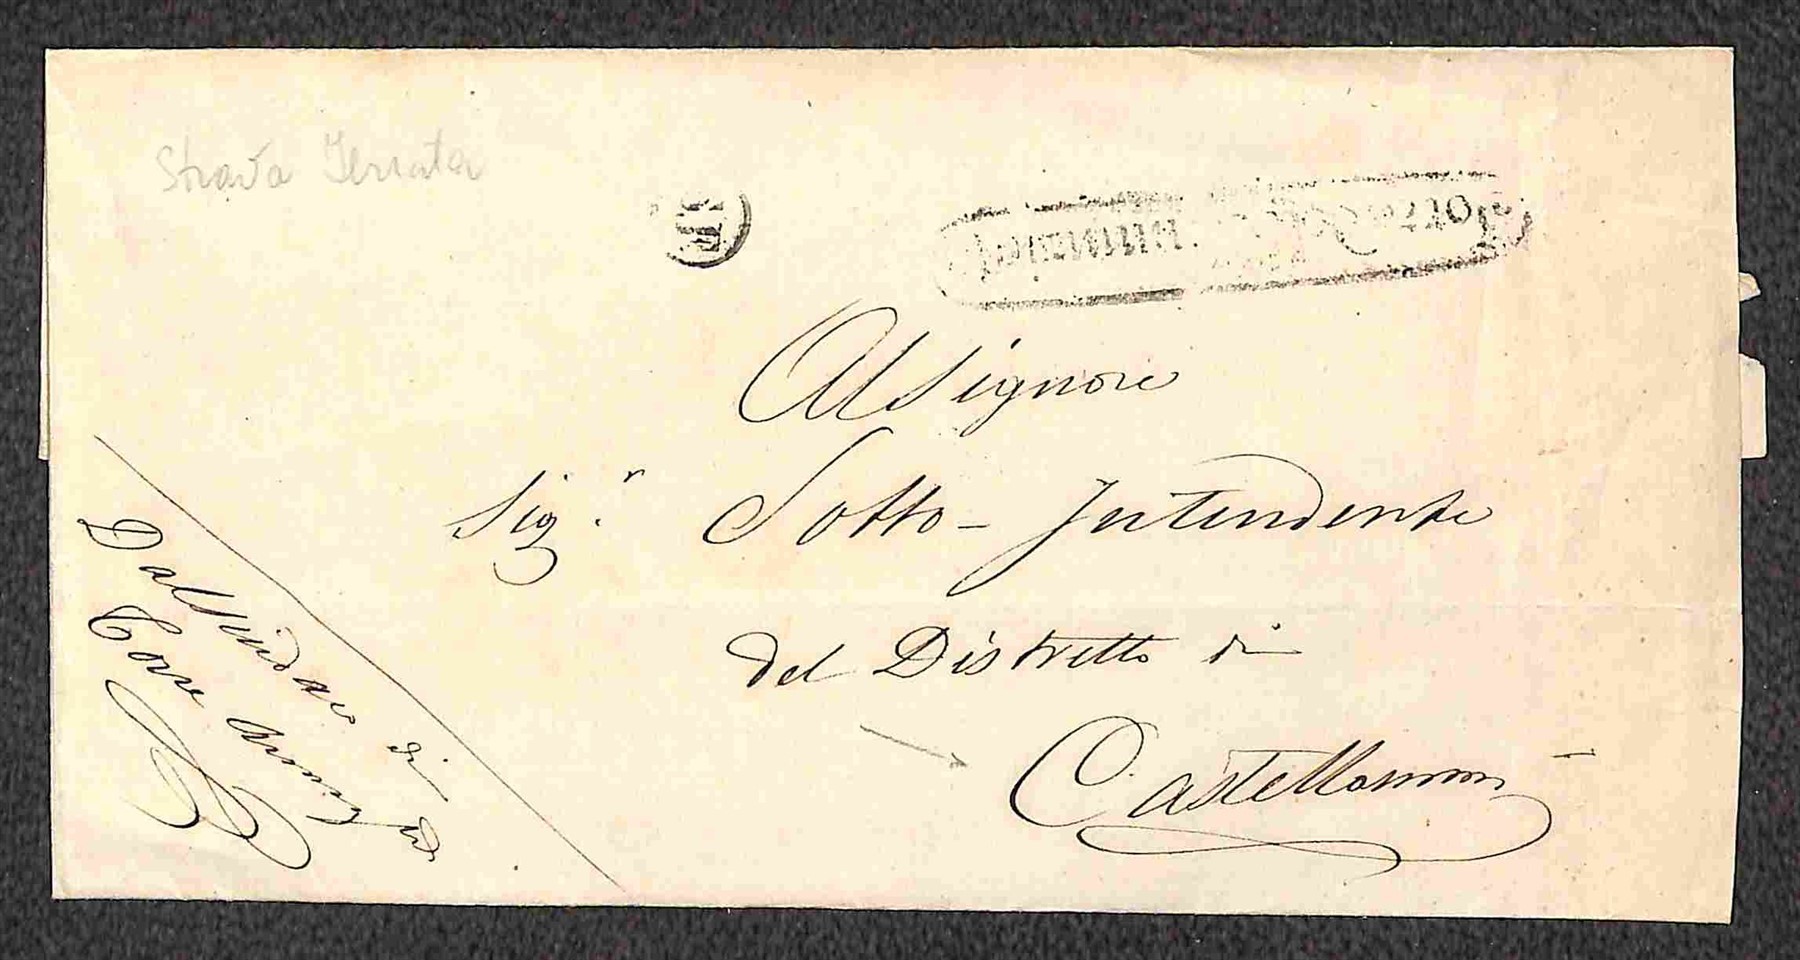 Strada Ferrata
Al Signore
Sig.r Sotto-Intendente
del Distretto di
Castellammᵉ
Dal Sindaco di
Torre Annunz.ta